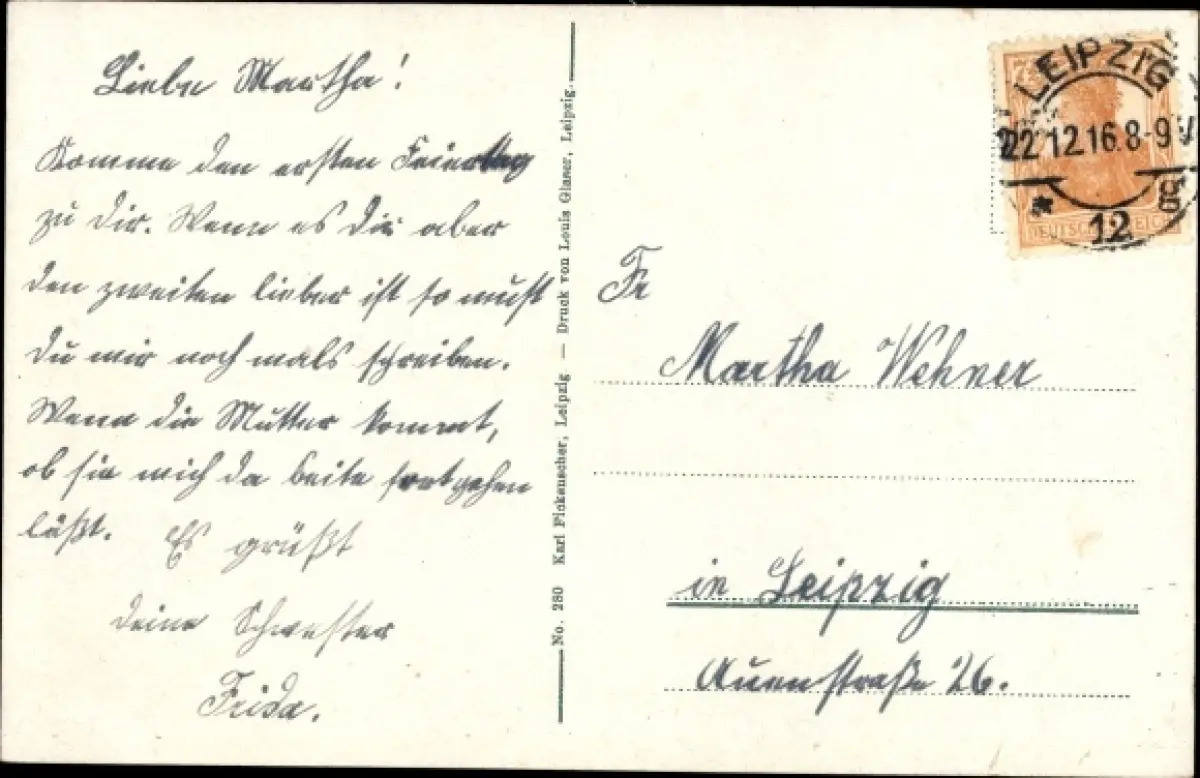 Liebe Martha!
Komme den ersten Feiertag
zu dir. Wenn es dir aber
den zweiten lieber ist so mußt
du mir noch mals schreiben.
Wenn die Mutter kommt,
ob sie mich da heite fortgehen
läßt. Es grüßt
deine Schwester
Frida.
No. 280 Karl Fickenscher, Leipzig — Druck von Louis Glaser, Leipzig.
LEIPZIG
22.12.16.8-9V
* 12 g
7½
DEUTSCHES REICH
Fr
Martha Wehner
in Leipzig
Auenstraße 26.